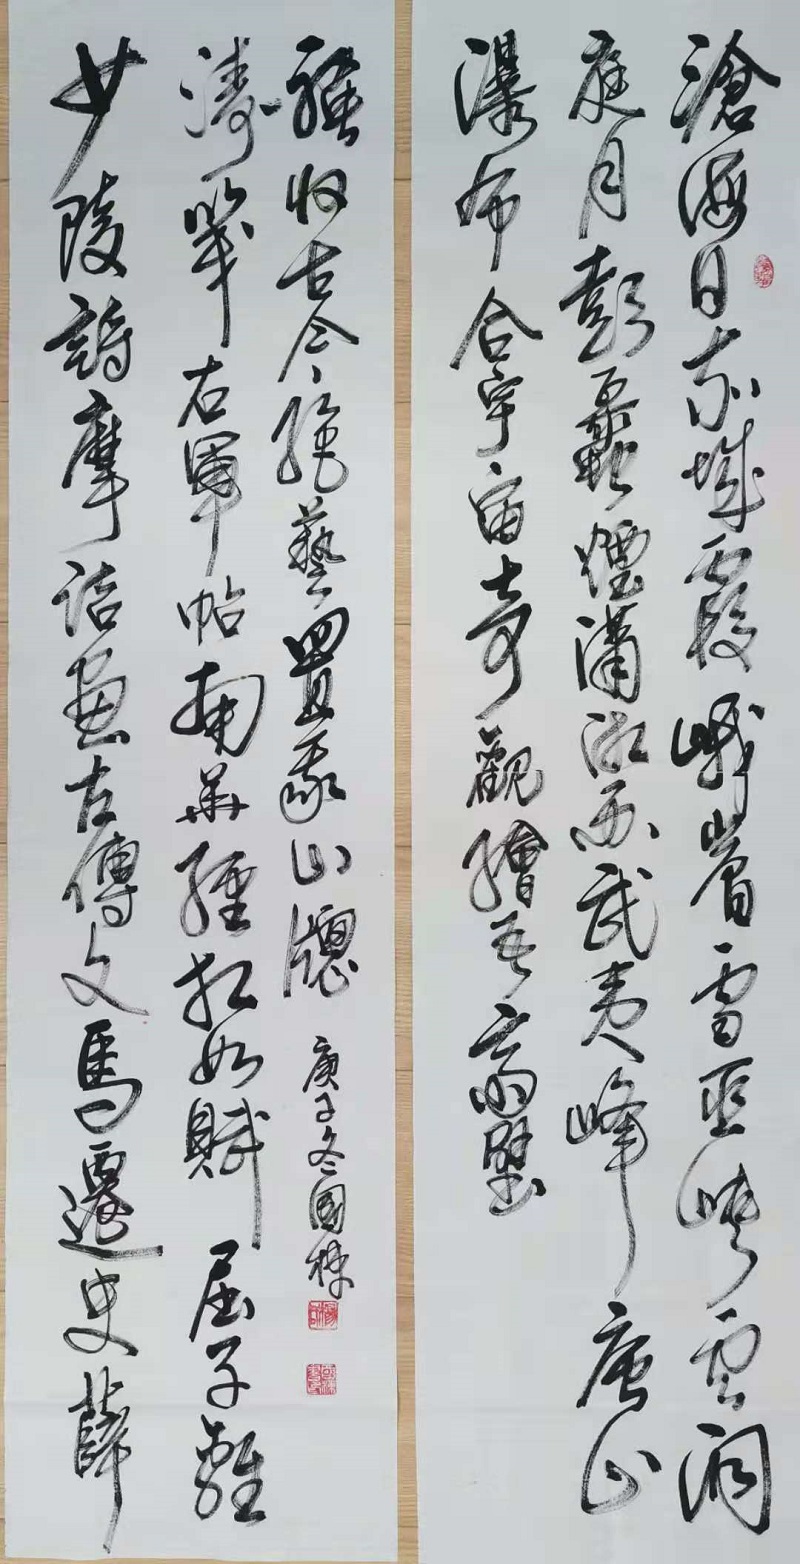 滄海日赤城霞峨嵋雪巫峽雲洞
庭月彭蠡煙瀟湘雨武夷峰廬山
瀑布合宇宙奇觀繪吾齋壁
少陵詩摩詰畫左傳文馬遷史薛
濤箋右軍帖南華經相如賦屈子離
騷收古今絕藝置我山牕
庚子冬國